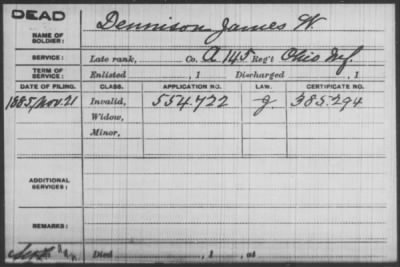 DEAD
NAME OF SOLDIER: Dennison James W.
SERVICE: Late rank, Co. A 145 Reg't Ohio Inf.
TERM OF SERVICE: Enlisted , 1 Discharged , 1
DATE OF FILING. CLASS. APPLICATION NO. LAW. CERTIFICATE NO.
1885, Nov. 21 Invalid, 554.722 G. 385.294
Widow,
Minor,
ADDITIONAL SERVICES:
REMARKS:
Died , 1 , at